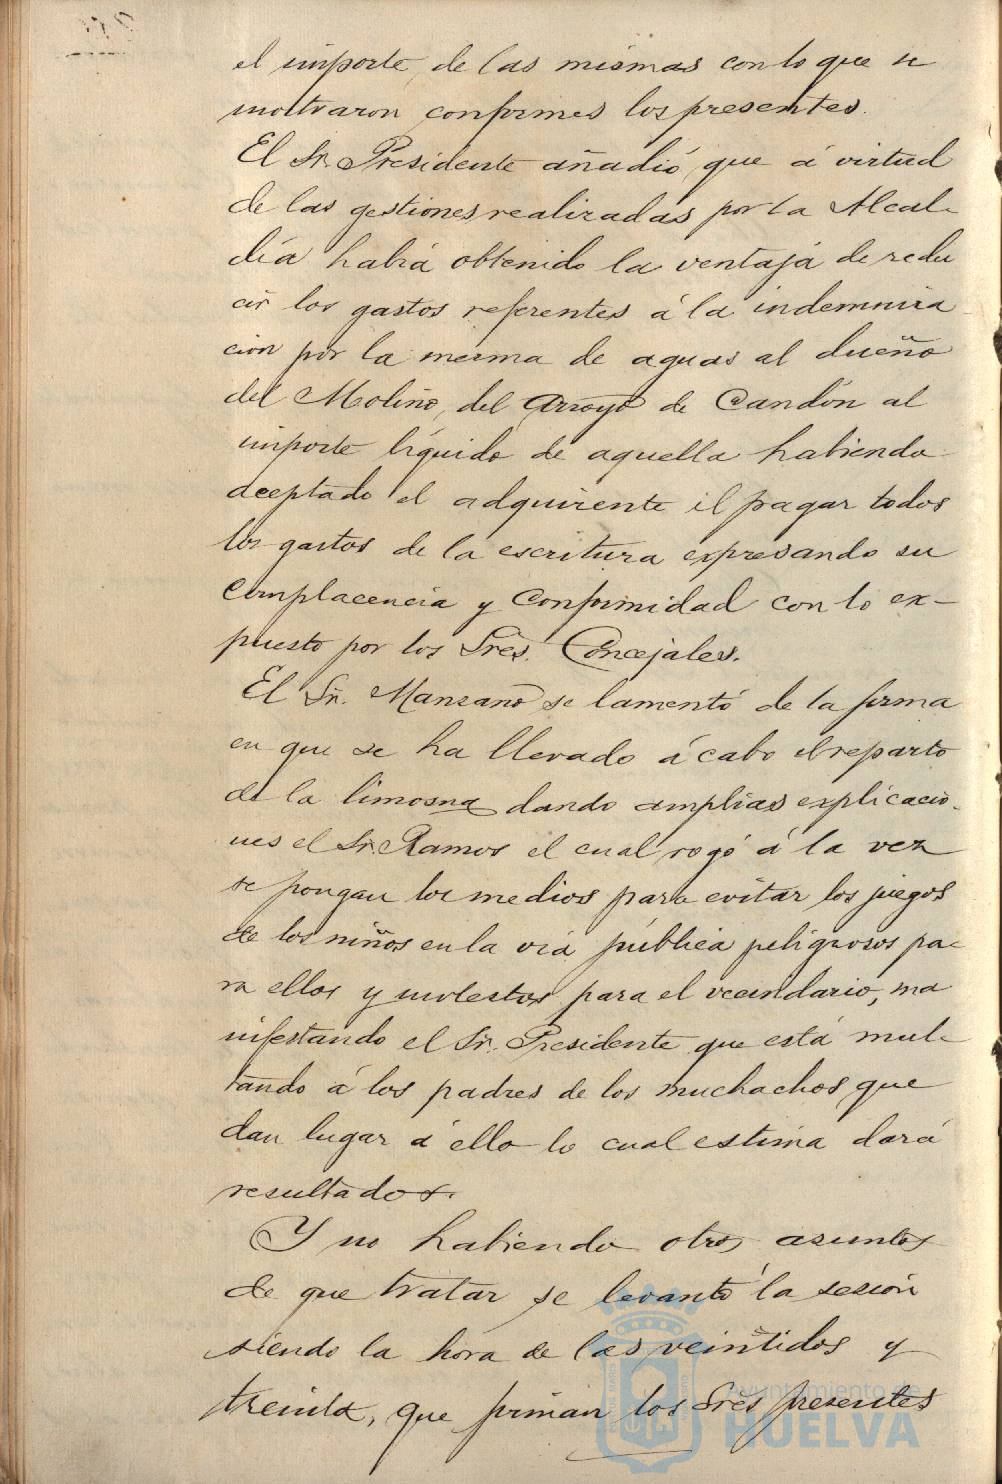 el importe de las mismas con lo que se
mostraron conformes los presentes.
El Sr. Presidente añadió que á virtud
de las gestiones realizadas por la Alcal-
día había obtenido la ventaja de redu
cir los gastos referentes á la indemniza
cion por la merma de aguas al dueño
del Molino del Arroyo de Candón al
importe líquido de aquella habiendo
aceptado el adquirente el pagar todos
los gastos de la escritura expresando su
complacencia y conformidad con lo ex-
puesto por los Sres. Concejales.
El Sr. Manzano se lamentó de la forma
en que se ha llevado á cabo el reparto
de la limosna dando amplias explicacio-
nes el Sr. Ramos el cual rogó á la vez
se pongan los medios para evitar los juegos
de los niños en la via pública peligrosos pa-
ra ellos y molestos para el vecindario, ma
nifestando el Sr. Presidente que está mul-
tando á los padres de los muchachos que
dan lugar á ello lo cual estima dará
resultados.
Y no habiendo otros asuntos
de que tratar se levantó la sesión
siendo la hora de las veintidos y
treinta, que firman los Sres presentes
Ayuntamiento de
HUELVA